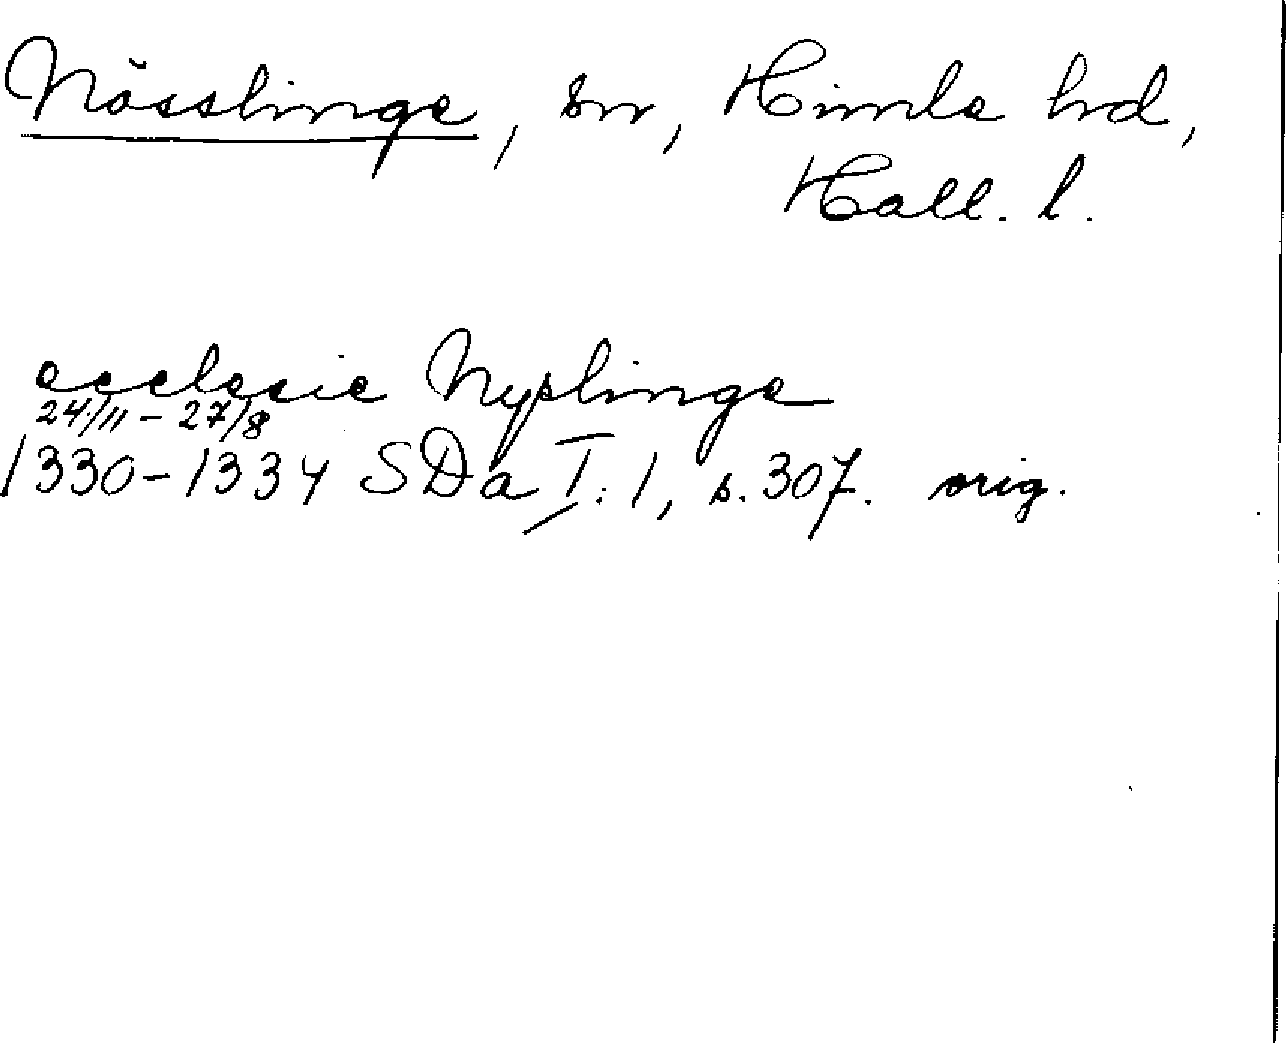 Nösslinge, sn, Himle hd,
Hall. l.
ecclesie Nyslinge
24/11 - 27/8
1330-1334 SDa I: 1, s. 307. orig.